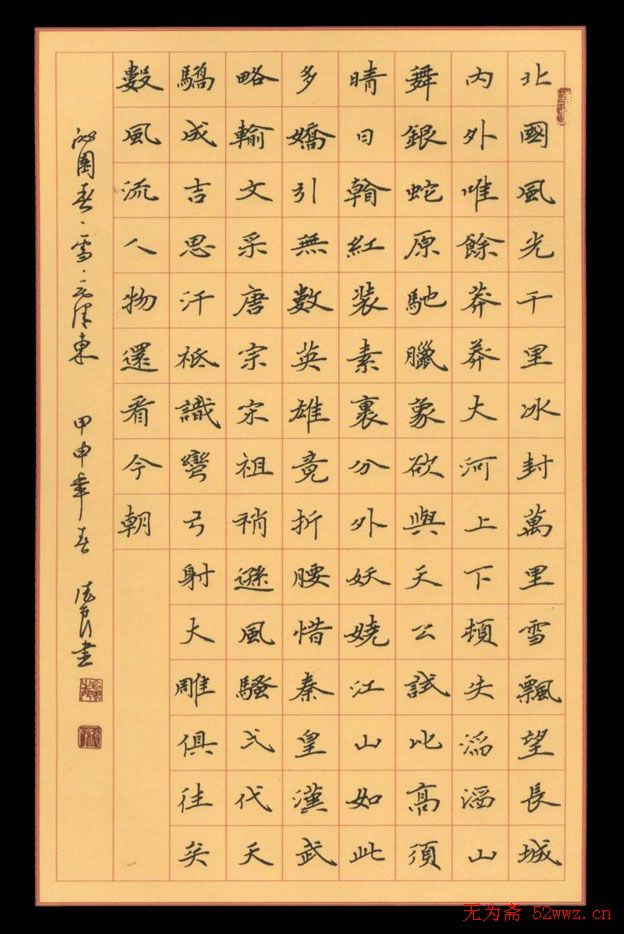 北國風光千里冰封萬里雪飄望長城
內外唯餘莽莽大河上下頓失滔滔山
舞銀蛇原馳臘象欲與天公試比高須
晴日䀍紅裝素裹分外妖嬈江山如此
多嬌引無數英雄竟折腰惜秦皇漢武
略輸文采唐宗宋祖稍遜風騷弌代天
驕成吉思汗祗識彎弓射大雕俱往矣
數風流人物還看今朝
沁園春·雪·毛澤東 甲申年春 書
无为斋 52wwz.cn